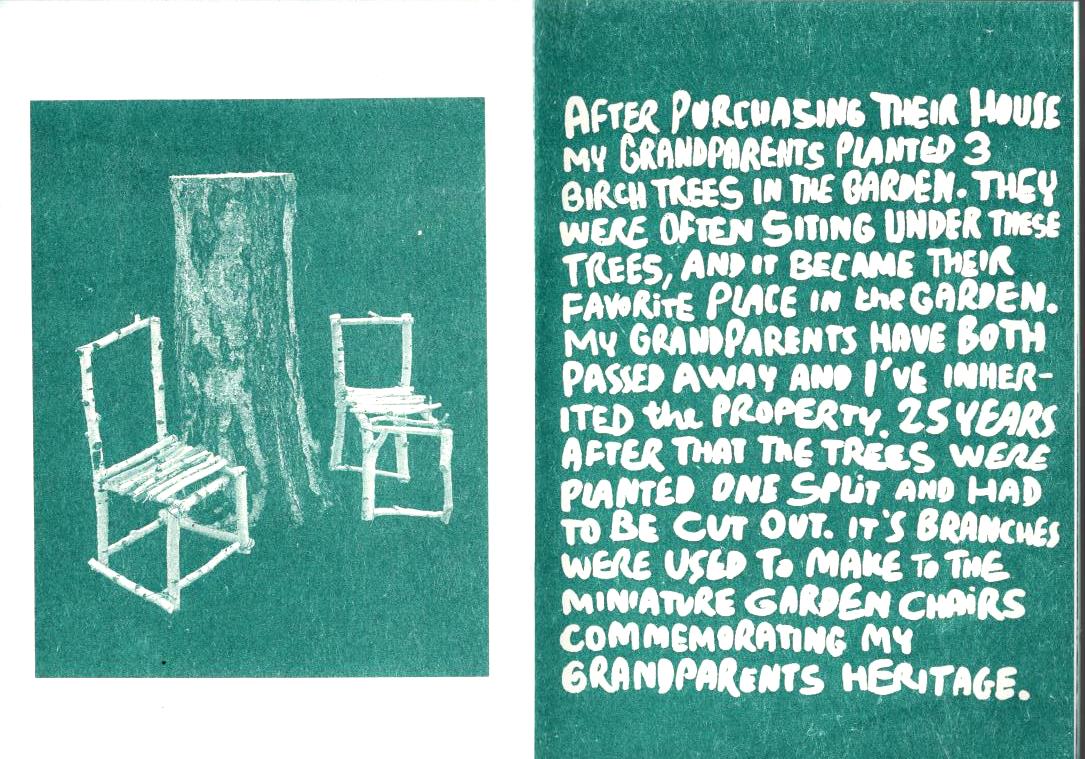 AFTER PURCHASING THEIR HOUSE
MY GRANDPARENTS PLANTED 3
BIRCH TREES IN THE GARDEN. THEY
WERE OFTEN SITING UNDER THESE
TREES, AND IT BECAME THEIR
FAVORITE PLACE IN the GARDEN.
MY GRANDPARENTS HAVE BOTH
PASSED AWAY AND I'VE INHER-
ITED the PROPERTY. 25 YEARS
AFTER THAT THE TREES WERE
PLANTED ONE SPLIT AND HAD
TO BE CUT OUT. IT'S BRANCHES
WERE USED To MAKE To THE
MINIATURE GARDEN CHAIRS
COMMEMORATING MY
GRANDPARENTS HERITAGE.